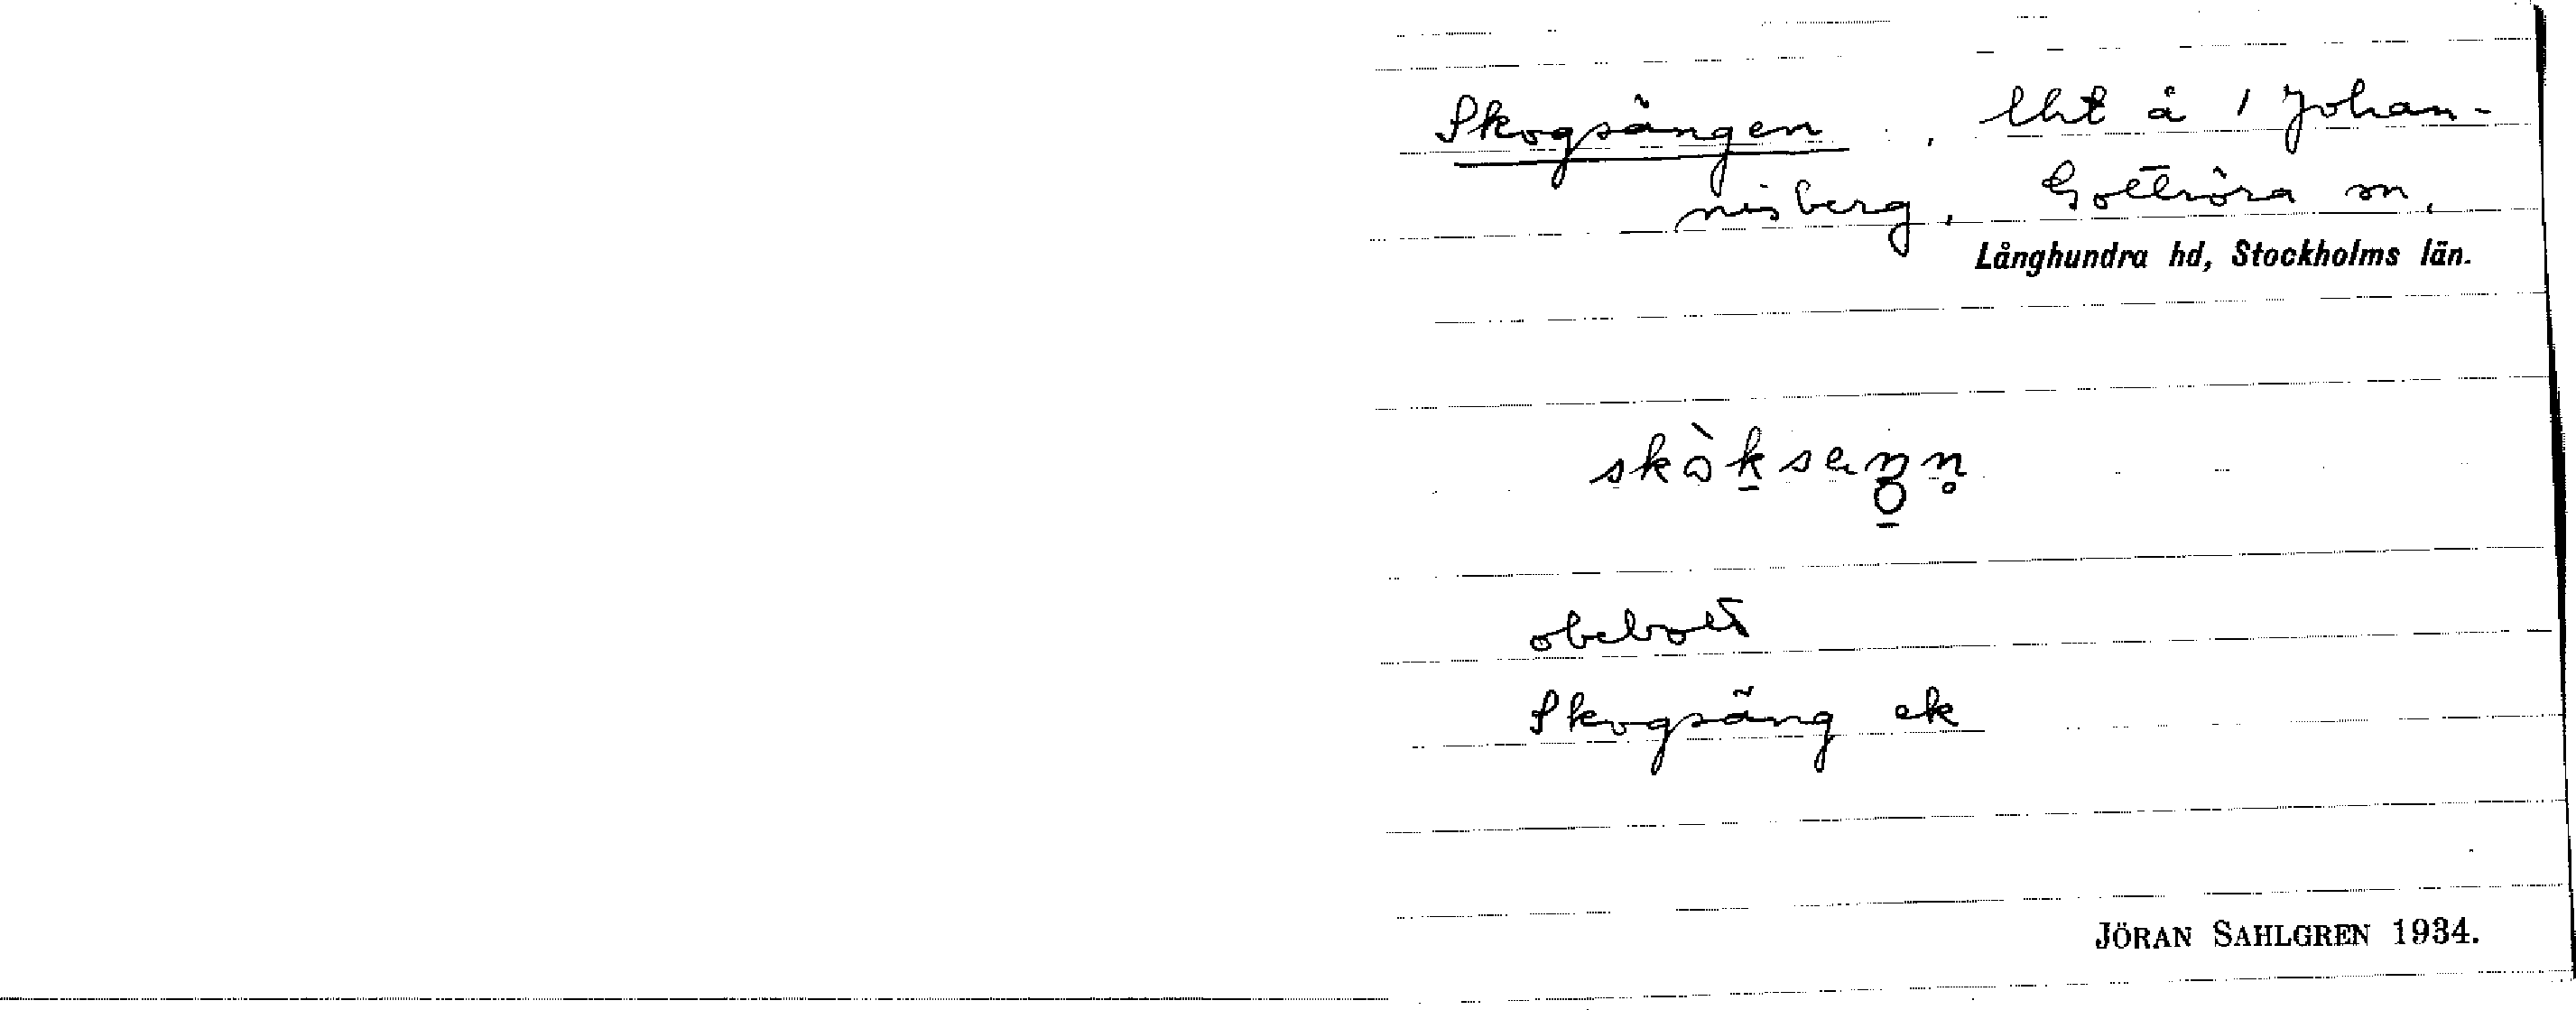 Skogsängen, lht å 1 Johan-
nisberg, Gottröra sn,
Långhundra hd, Stockholms län.
obebott
Skogsäng ek
JÖRAN SAHLGREN 1934.